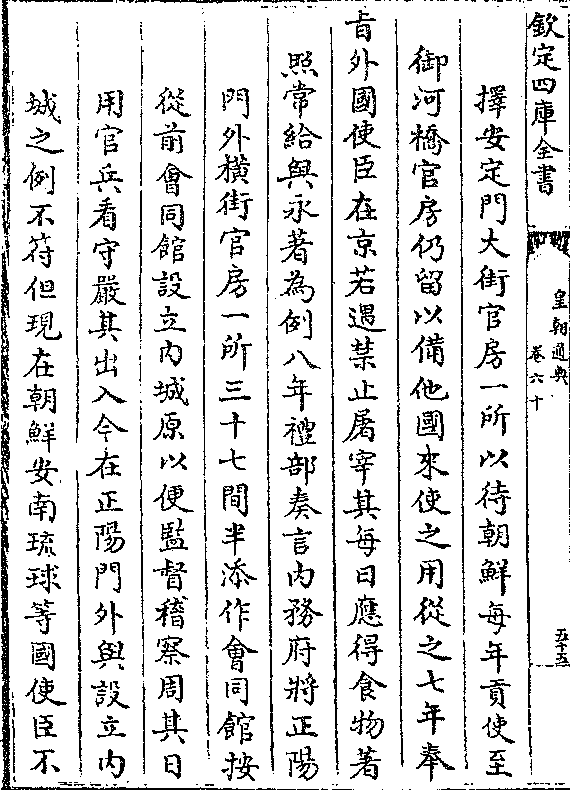 欽定四庫全書
皇朝通典
卷六十
五十五
擇安定門大街官房一所以待朝鮮每年貢使至
御河橋官房仍留以備他國來使之用從之七年奉
旨外國使臣在京若遇禁止屠宰其每日應得食物著
照常給與永著為例八年禮部奏言內務府將正陽
門外橫街官房一所三十七間半添作會同館按
從前會同館設立內城原以便監督稽察周其日
用官兵看守嚴其出入今在正陽門外與設立內
城之例不符但現在朝鮮安南琉球等國使臣不